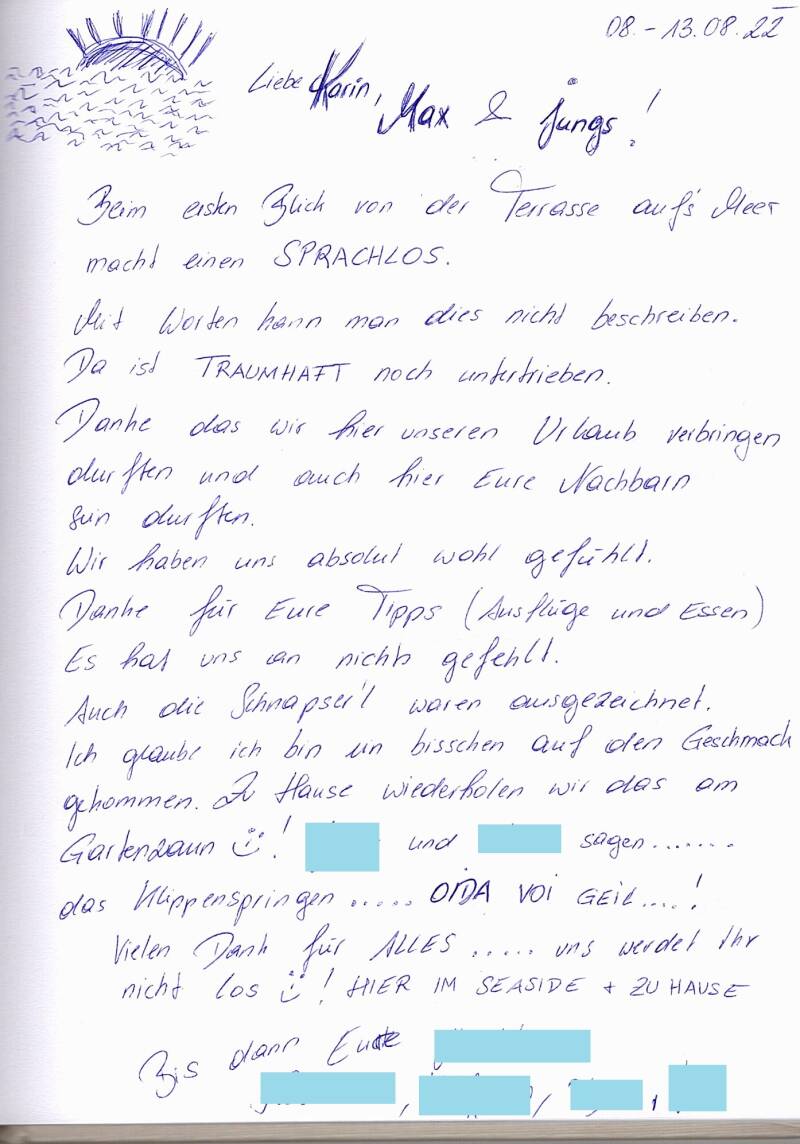 08. - 13.08.22
Liebe Karin,
Max & Jungs!
Beim ersten Blick von der Terrasse auf's Meer
macht einen SPRACHLOS.
Mit Worten kann man dies nicht beschreiben.
Da ist TRAUMHAFT noch untertrieben.
Danke das wir hier unseren Urlaub verbringen
durften und auch hier Eure Nachbarn
sein durften.
Wir haben uns absolut wohl gefühlt.
Danke für Eure Tipps (Ausflüge und Essen)
Es hat uns an nichts gefehlt.
Auch die Schnapser'l waren ausgezeichnet.
Ich glaube ich bin ein bisschen auf den Geschmack
gekommen. Zu Hause wiederholen wir das am
Gartenzaun ! und sagen.......
das Klippenspringen ..... OIDA VOI GEIL....!
Vielen Dank für ALLES ..... uns werdet Ihr
nicht los ! HIER IM SEASIDE + ZU HAUSE
Bis dann Eure